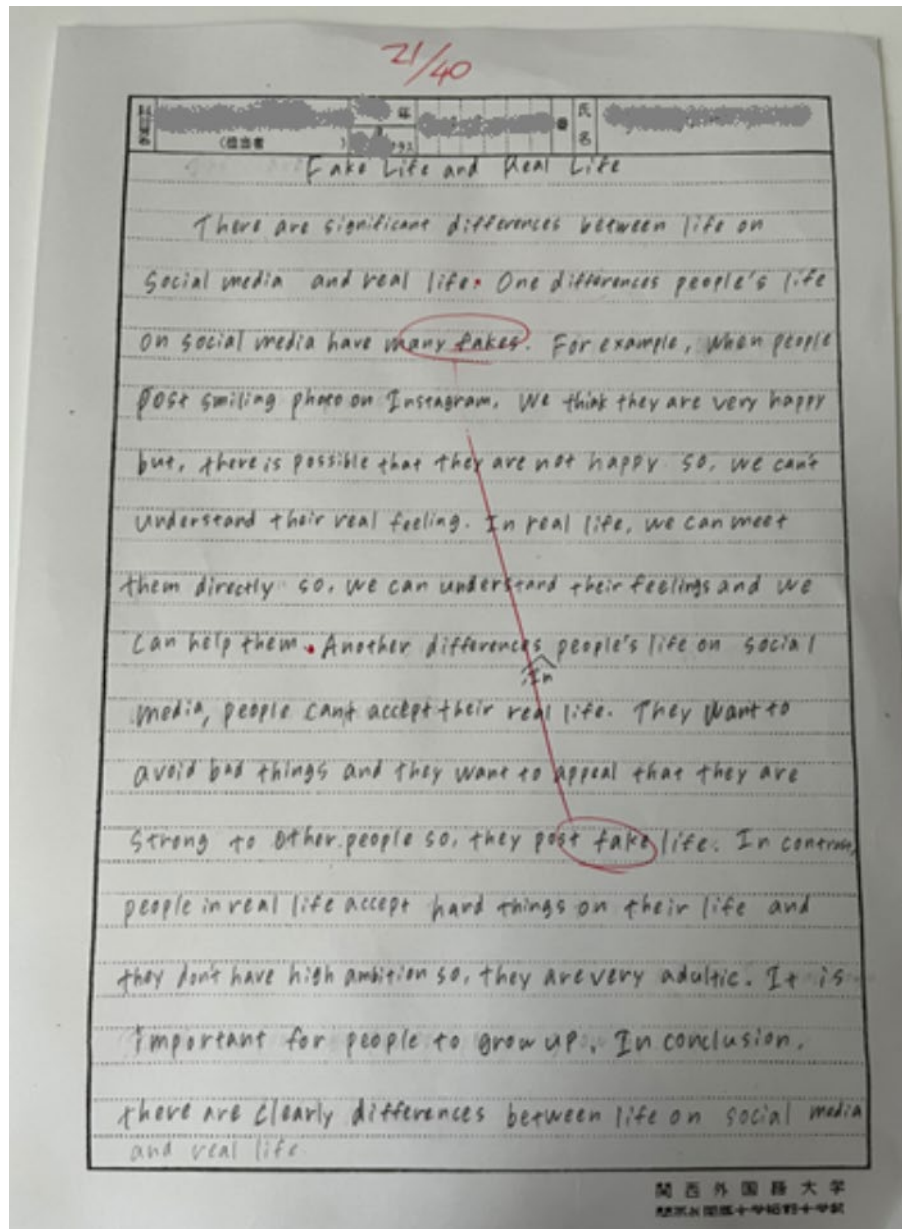 21/40
年
番
氏
名
(担当者 )
クラス
Fake Life and Real Life
There are significant differences between life on
Social media and real life. One differences people's life
on social media have many fakes. For example, when people
post smiling photo on Instagram, we think they are very happy
but, there is possible that they are not happy so, we can't
understand their real feeling. In real life, we can meet
them directly so, we can understand their feelings and we
can help them. Another differences people's life on social
In
media, people can't accept their real life. They want to
avoid bad things and they want to appeal that they are
strong to other people so, they post fake life. In contrast,
people in real life accept hard things on their life and
they don't have high ambition so, they are very adultic. It is
important for people to grow up. In conclusion,
there are clearly differences between life on social media
and real life
関西外国語大学